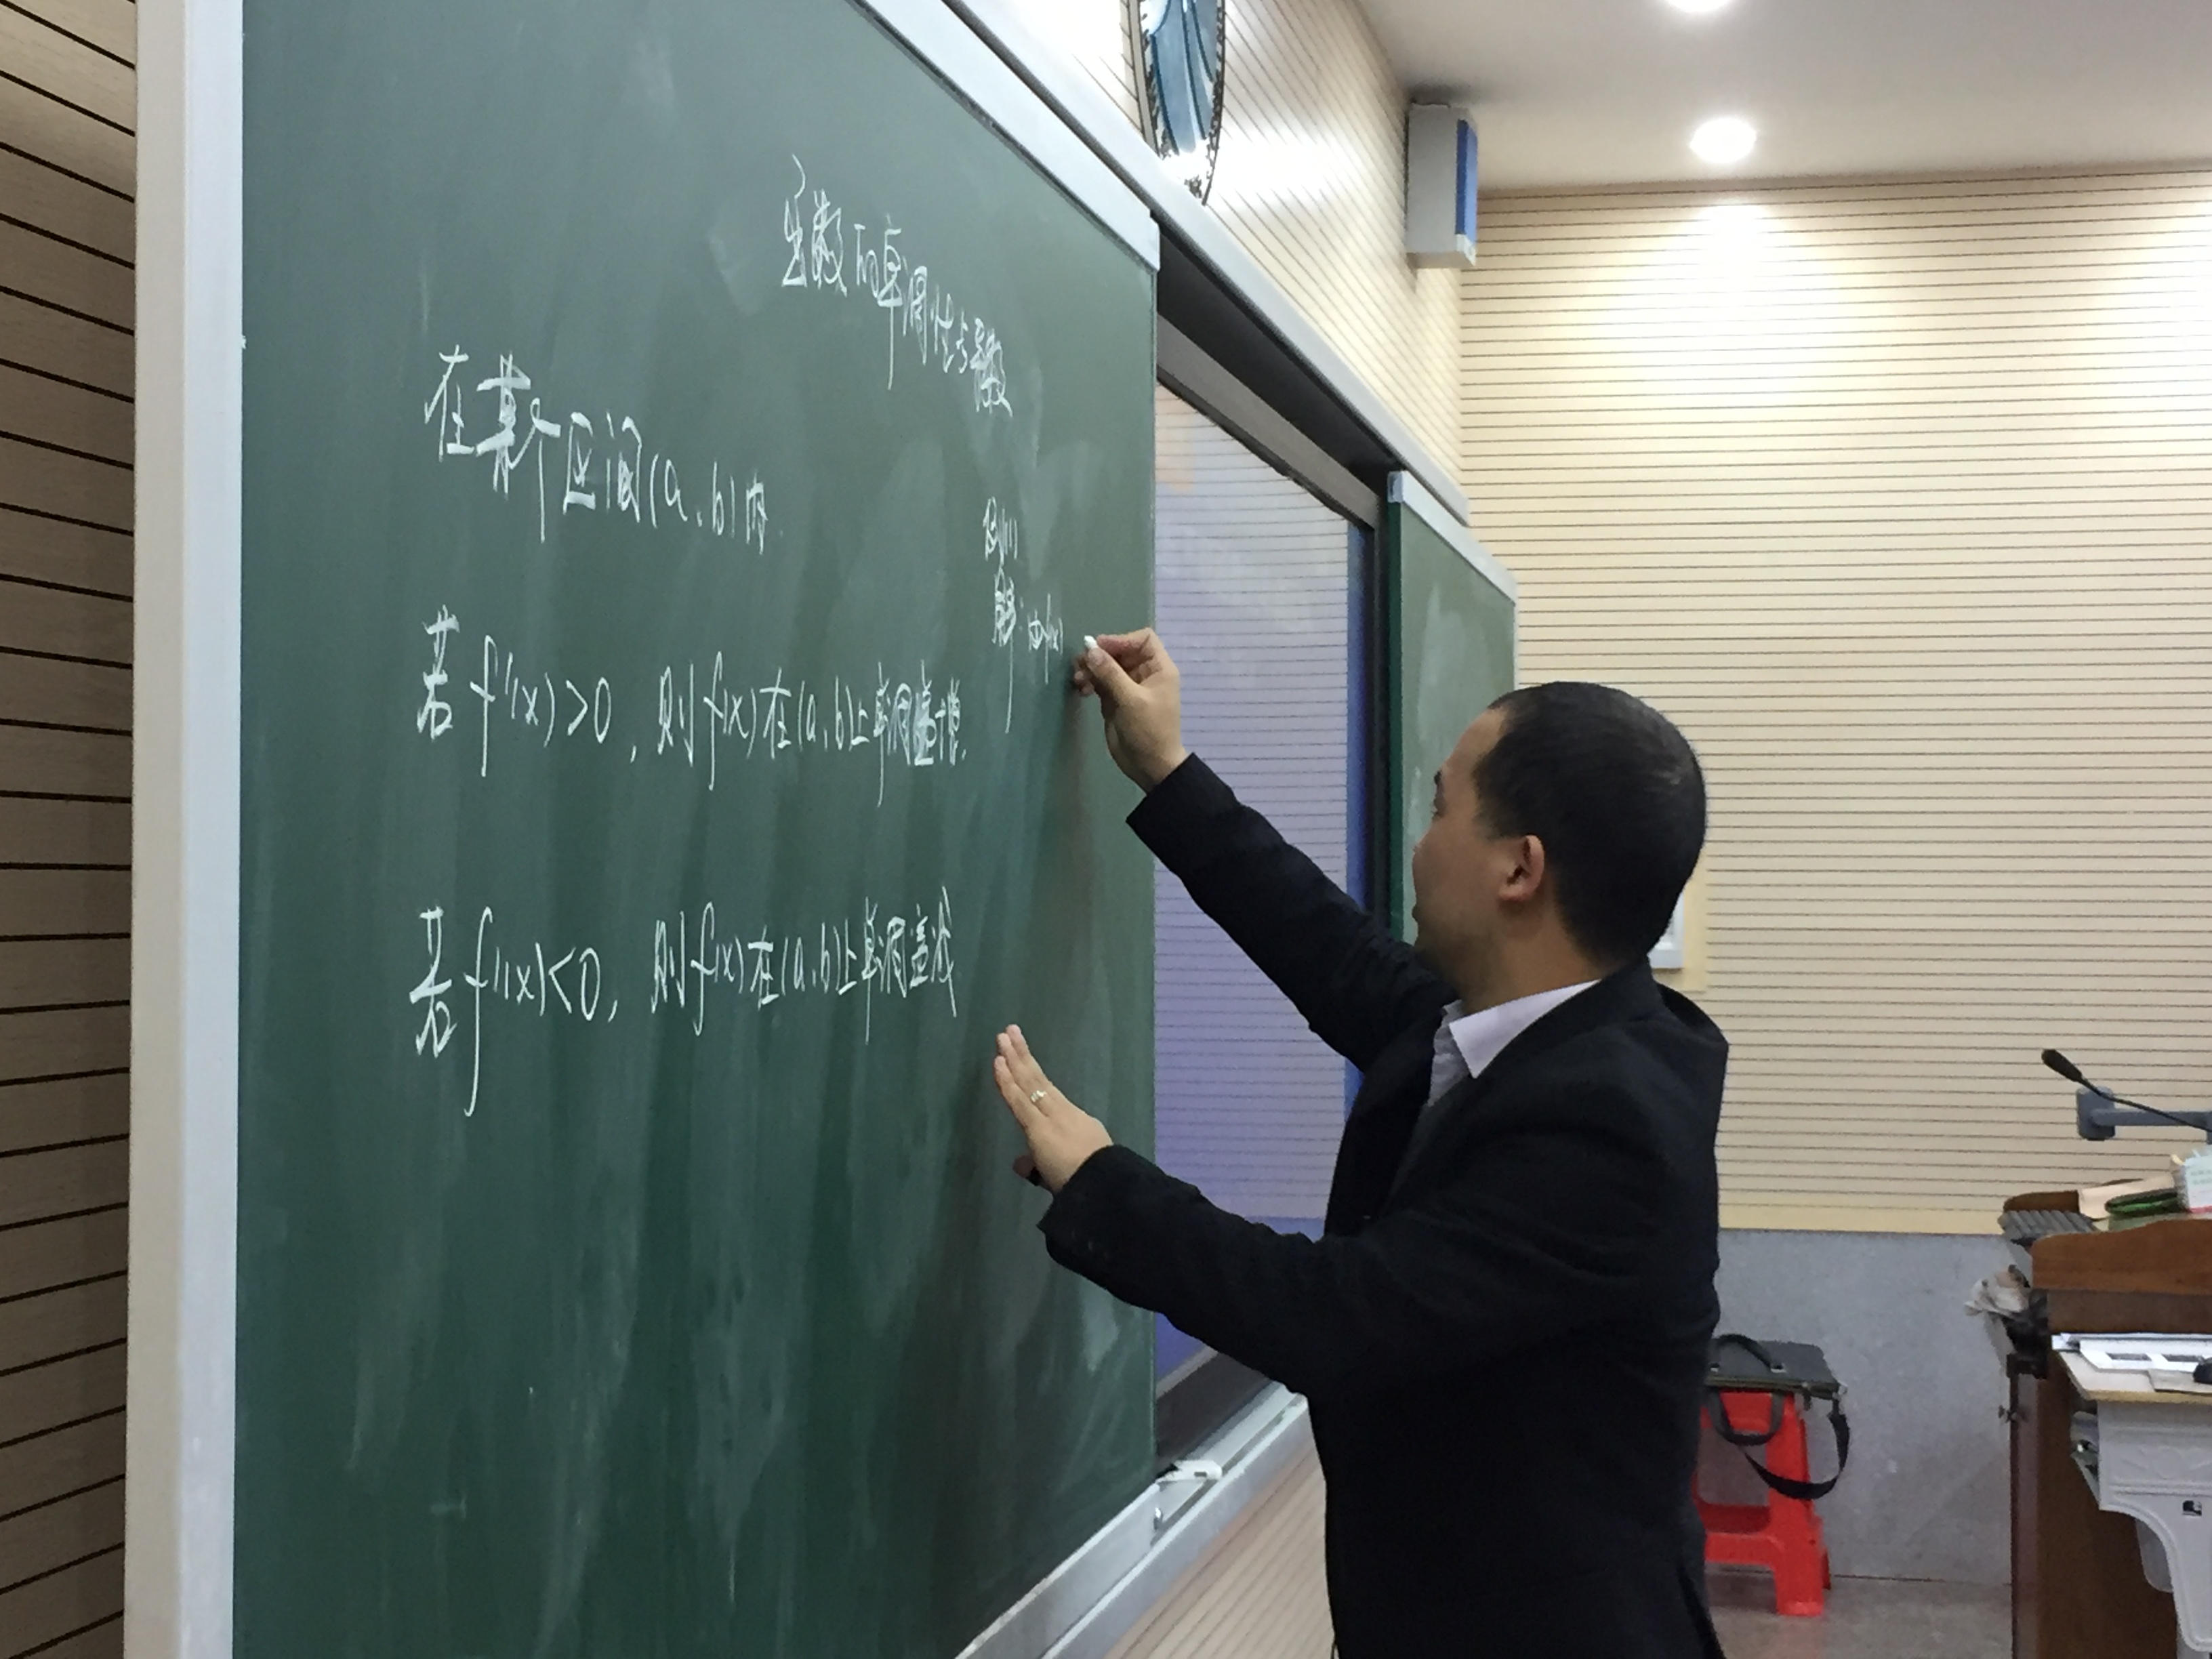 函数的单调性与导数
在某个区间(a,b)内
例1
解:由f(x)
若f'(x)>0,则f(x)在(a,b)上单调递增.
若f'(x)<0,则f(x)在(a,b)上单调递减